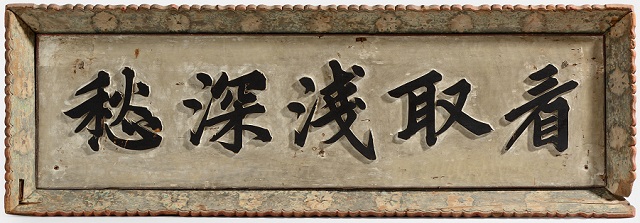 看取淺深愁